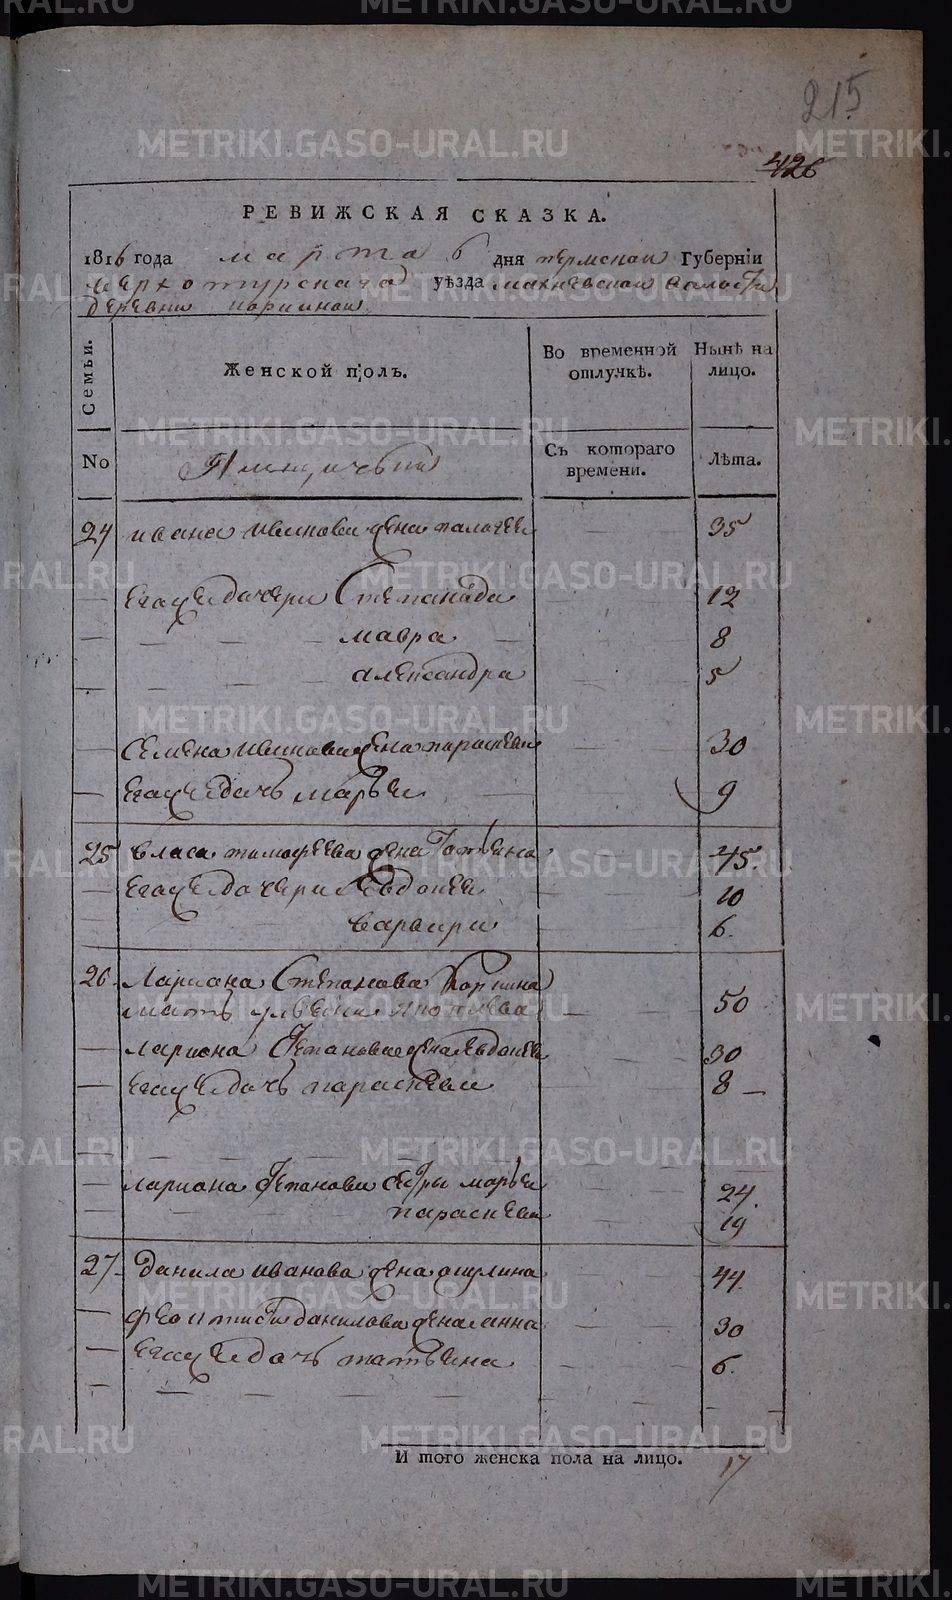 215
426
РЕВИЖСКАЯ СКАЗКА.
1816 года марта 6 дня пермской Губерніи
верхотурскаго уѣзда махневской волости
деревни коркиной
Семьи.
Женской полъ.
Во временной отлучкѣ.
Нынѣ на лицо.
No
Съ котораго времени.
Лѣта.
24 ивана иванова жена палагея 35
егоже дочери Степанида 12
мавра 8
александра 5
Семена иванова жена параскева 30
егоже дочь марья 9
25 власа тимофеева жена татьяна 45.
егоже дочери авдотья 10
варвара 6.
26 Лариона Степанова Коркина
мать 50
лариона Степанова жена авдотья 30
егоже дочь параскева 8
лариона Степанова сестры марья 24.
параскева 19
27 данила иванова жена акулина 44.
феоктиста данилова жена анна 30
егоже дочь татьяна 6.
И того женска пола на лицо. 17
METRIKI.GASO-URAL.RU